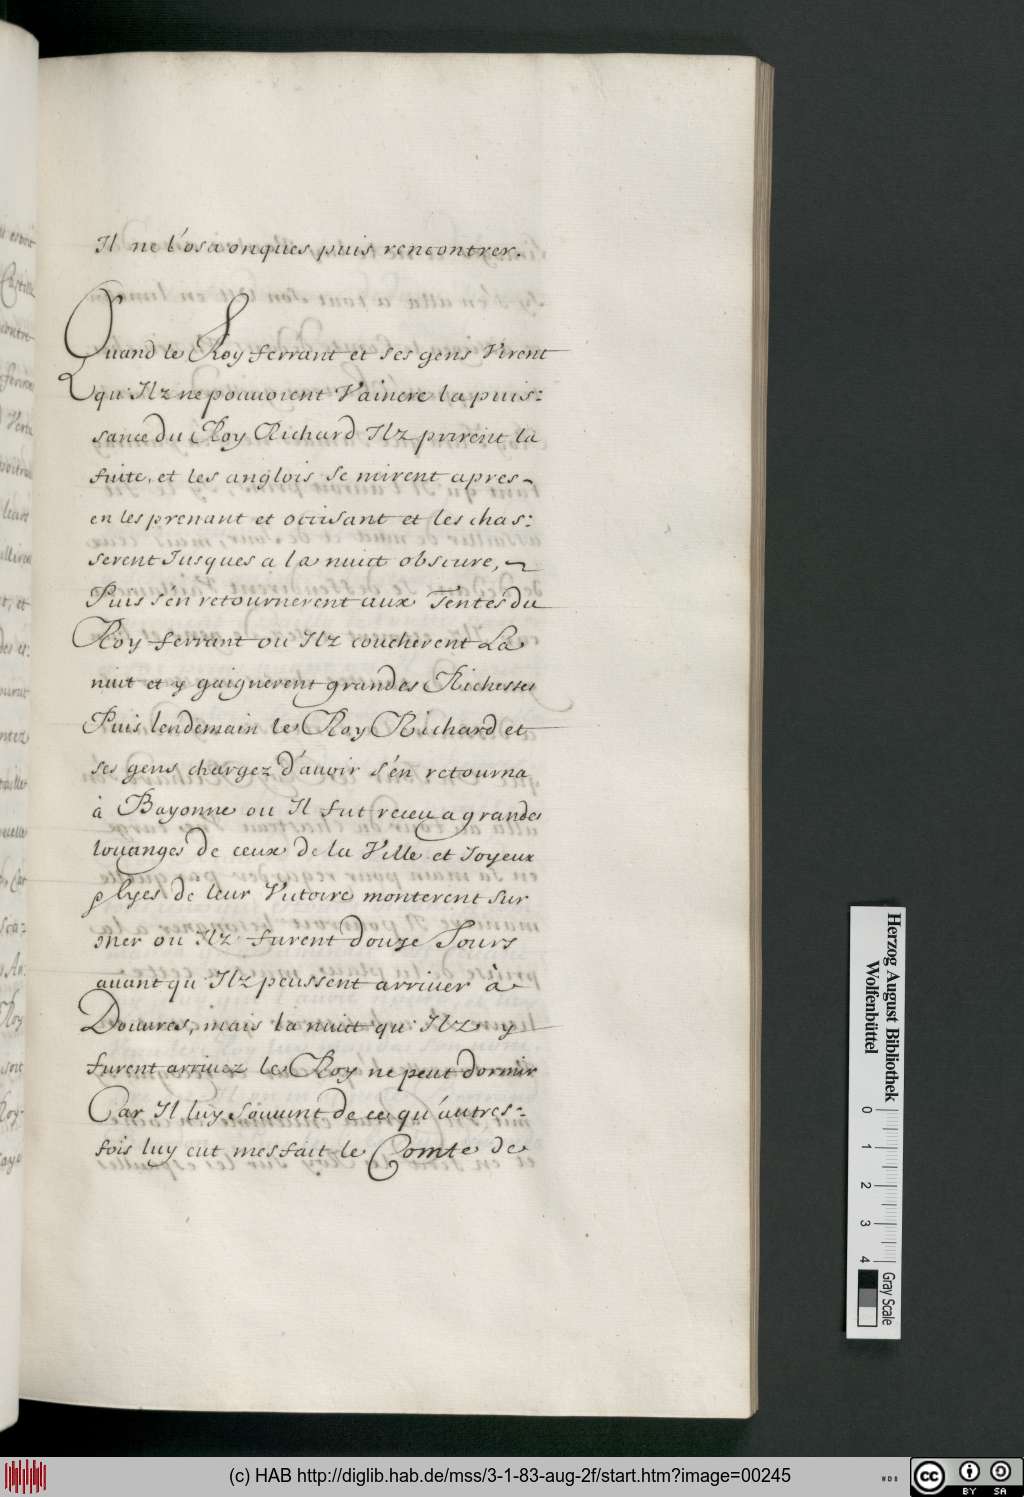 Il ne l'osa onques puis rencontrer.
Quand le Roy ferrant et ses gens Virent
qu'Ilz ne pouuoient Vaincre la puis:
sance du Roy Richard Ilz prirent la
fuite, et les anglois se mirent apres
en les prenant et occisant et les chas:
serent Iusques a la nuit obscure,
Puis s'en retournerent aux Tentes du
Roy ferrant ou Ilz coucherent La
nuit et y gaignerent grandes Richesses
Puis lendemain le Roy Richard et
ses gens chargez d'auoir s'en retourna
à Bayonne ou Il fut receu a grande
louanges de ceux de la Ville et Ioyeux
plyes de leur Victoire monterent sur
mer ou Ilz furent douze Iours
auant qu'Ilz peussent arriuer à
Douures, mais la nuit qu'Ilz y
furent arriuez le Roy ne peut dormir
Car Il luy souuint de ce qu'autres:
fois luy eut mesfait le Comte de
Herzog August Bibliothek
Wolfenbüttel
0 1 2 3 4
Gray Scale
(c) HAB http://diglib.hab.de/mss/3-1-83-aug-2f/start.htm?image=00245
cc BY SA